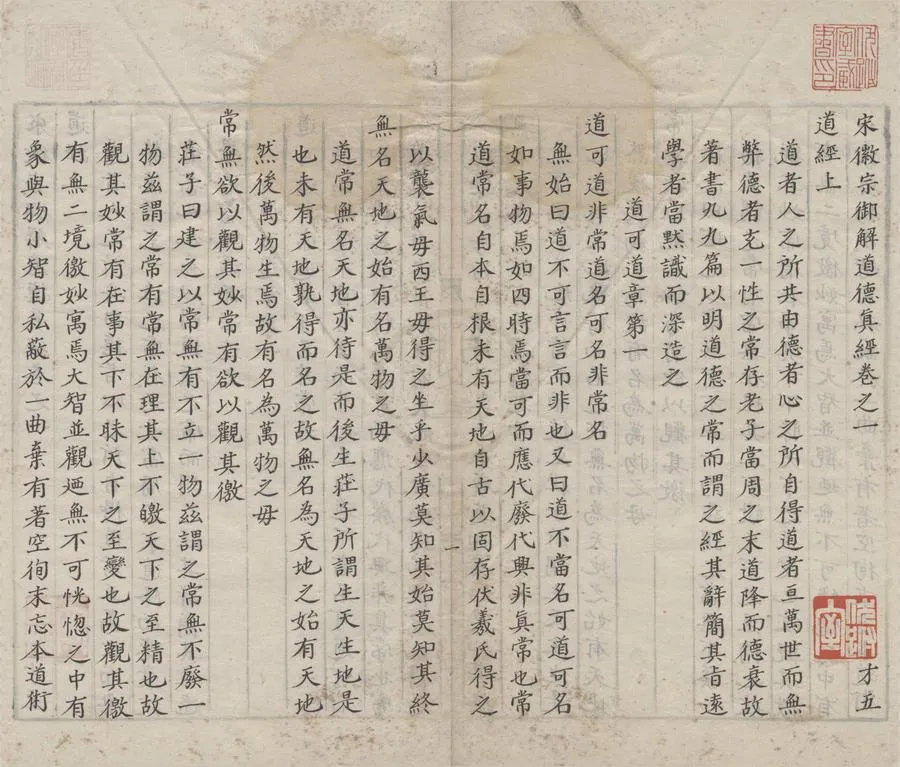 宋徽宗御解道德眞經卷之一
才五
道經上
道者人之所共由德者心之所自得道者亘萬世而無
弊德者充一性之常存老子當周之末道降而德衰故
著書九九篇以明道德之常而謂之經其辭簡其旨遠
學者當默識而深造之
道可道章第一
道可道非常道名可名非常名
無始曰道不可言言而非也又曰道不當名可道可名
如事物焉如四時焉當可而應代廢代興非眞常也常
道常名自本自根未有天地自古以固存伏羲氏得之
一
以襲氣毋西王毋得之坐乎少廣莫知其始莫知其終
無名天地之始有名萬物之毋
道常無名天地亦待是而後生莊子所謂生天生地是
也未有天地孰得而名之故無名為天地之始有天地
然後萬物生焉故有名為萬物之毋
常無欲以觀其妙常有欲以觀其徼
莊子曰建之以常無有不立一物茲謂之常無不廢一
物茲謂之常有常無在理其上不皦天下之至精也故
觀其妙常有在事其下不昧天下之至變也故觀其徼
有無二境徼妙寓焉大智並觀迺無不可恍惚之中有
象與物小智自私蔽於一曲棄有著空徇末忘本道術